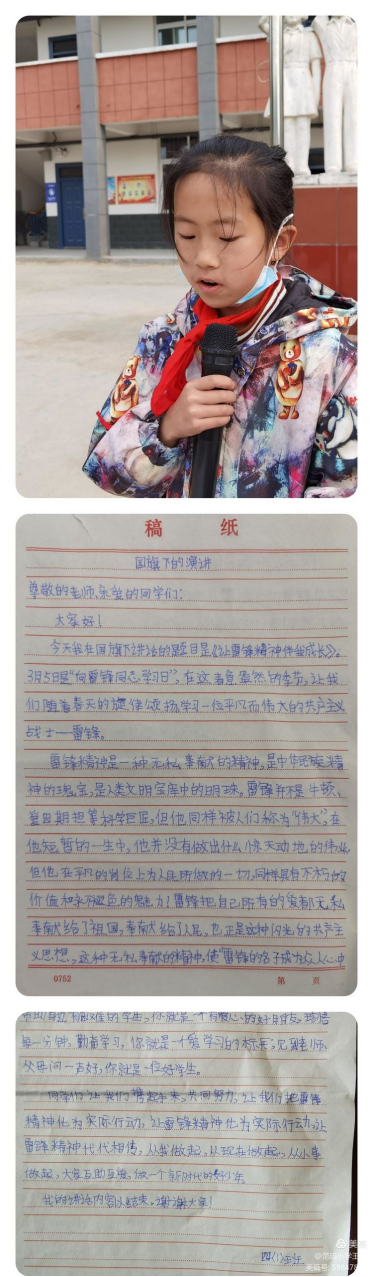 稿 纸
国旗下的演讲
尊敬的老师、亲爱的同学们:
大家好!
今天我在国旗下讲话的题目是《让雷锋精神伴我成长》。
3月5日是“向雷锋同志学习日”,在这春意盎然的季节,让我
们随着春天的旋律颂扬学习一位平凡而伟大的共产主义
战士——雷锋。
雷锋精神是一种无私奉献的精神,是中华民族精
神的瑰宝,是人类文明宝库中的明珠。雷锋并不是牛顿、
爱因斯坦等科学巨匠,但他同样被人们称为“伟大”,在
他短暂的一生中,他并没有做出什么惊天动地的伟业,
但他在平凡的岗位上为人民所做的一切,同样具有不朽的
价值和永不褪色的魅力!雷锋把自己所有的爱都无私
奉献给了祖国,奉献给了人民,也正是这种闪光的共产主
义思想,这种无私奉献的精神,使“雷锋的名字成为众人心中
0752 第 页
学生,你就是一个有爱心的好朋友;珍惜
每一分钟,勤奋学习,你就是一个爱学习的标兵;见到老师、
父母问一声好,你就是一位好学生。
同学们,让我们携起手来,共同努力,让我们把雷锋
精神化为实际行动,让雷锋精神也为实际行动,让
雷锋精神代代相传,从我做起,从现在做起,从小事
做起,大家互助互爱,做一个新时代的好少年。
我的讲话内容到此结束,谢谢大家!
四(1)
美篇